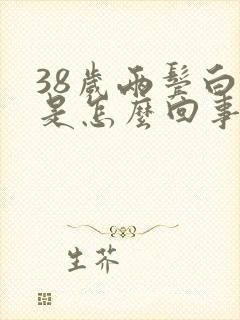 38歲兩鬓白
是怎麼回事
生芥